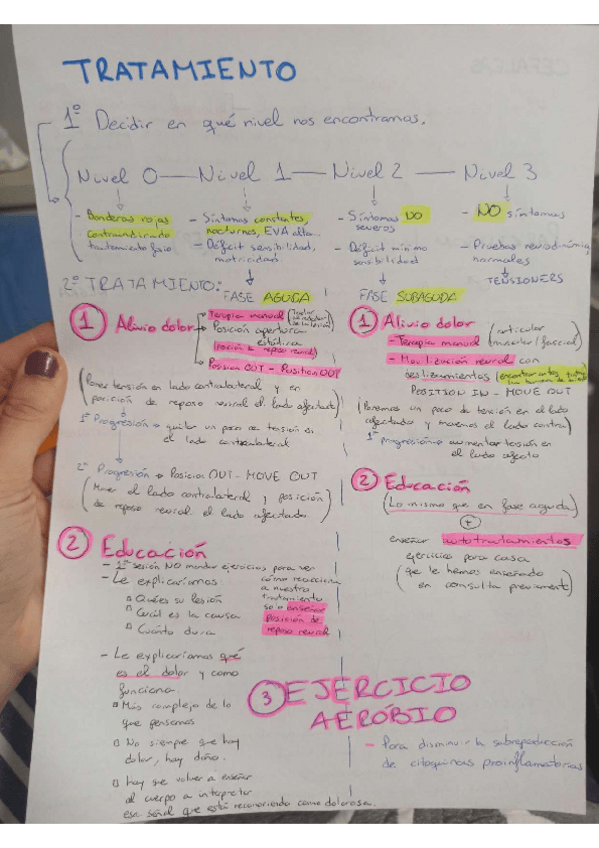 TRATAMIENTO
1º Decidir en qué nivel nos encontramos.
Nivel 0 — Nivel 1 — Nivel 2 — Nivel 3
- Banderas rojas
contraindicado
tratamiento fisio
- Síntomas constantes,
nocturnos, EVA alta...
- Déficit sensibilidad,
motricidad
- Síntomas NO
severos
- Déficit mínimo
sensibilidad
- NO síntomas
- Pruebas neurodinámicas
normales
TENSIONERS
2º TRATAMIENTO:
FASE AGUDA
1 Alivio dolor
Terapia manual
Posición apertura
estática
posición de reposo neural
Posicion OUT - Position OUT
(Poner tensión en lado contralateral y en
posición de reposo neural el lado afectado)
1ª Progresión → quitar un poco la tensión en
el lado contralateral
2ª Progresión → Posicion OUT - MOVE OUT
(Mover el lado contralateral y posición
de reposo neural el lado afectado)
2 Educación
- 1ª sesión NO mandar ejercicios para ver
cómo reacciona
a nuestro
tratamiento
solo enseñar
posición de
reposo neural
- Le explicaríamos:
Qué es su lesión
Cuál es la causa
Cuánto dura
- Le explicaríamos qué
es el dolor y como
funciona.
Más complejo de lo
que pensamos
No siempre que hay
dolor, hay daño.
Hay que volver a enseñar
al cuerpo a interpretar
esa señal que está reconociendo como dolorosa.
FASE SUBAGUDA
1 Alivio dolor
- Terapia manual (articular
muscular/fascial)
- Movilización neural con
deslizamientos
POSITION IN - MOVE OUT
(Ponemos un poco de tensión en el lado
afectado y movemos el lado contra)
1ª progresión → aumentar tensión en
el lado afecto
2 Educación
(Lo mismo que en fase aguda)
+
enseñar autotratamientos
ejercicios para casa
(que le hemos enseñado
en consulta previamente)
3 EJERCICIO
AERÓBIO
- Para disminuir la sobreproducción
de citoquinas proinflamatorias